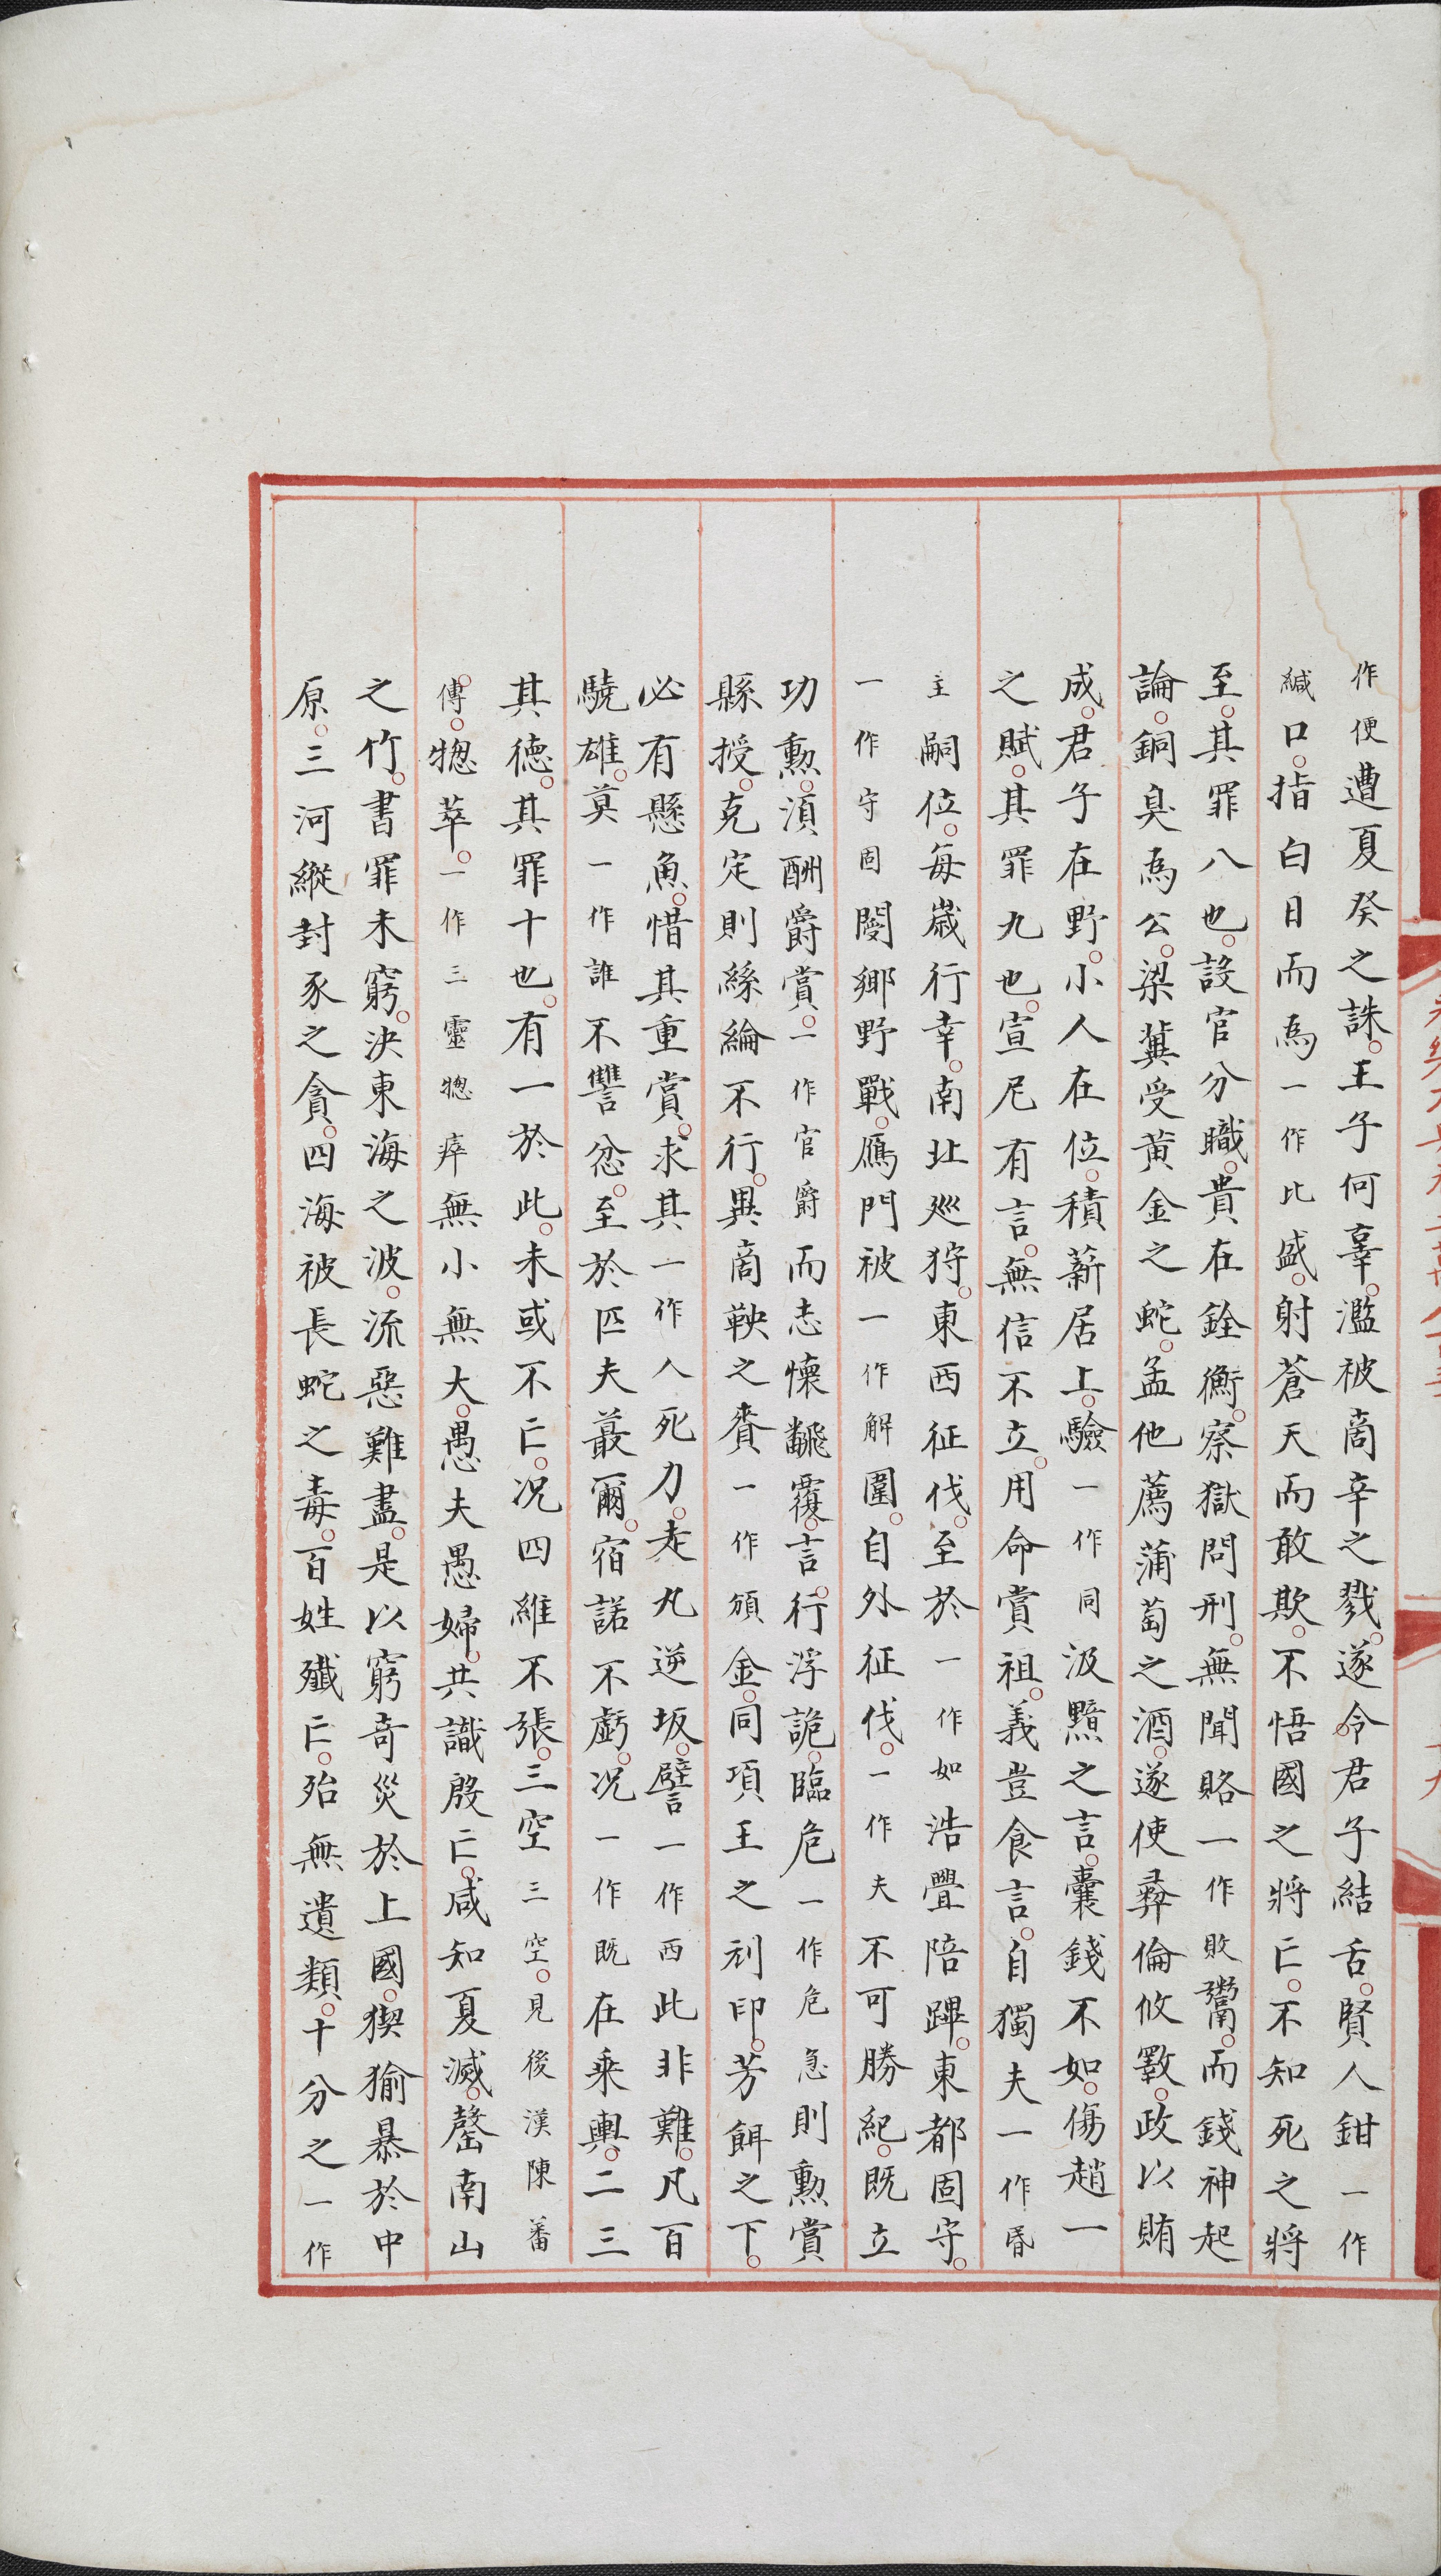 作便遭夏癸之誅王子何辜濫被啇辛之戮遂令君子結舌賢人鉗一作
緘口指白日而爲一作比盛射蒼天而敢欺不悟國之將亡不知死之將
至其罪八也設官分職貴在銓衡察獄問刑無聞賂一作敗鬻而錢神起
論銅臭爲公梁冀受黄金之蛇孟他薦蒲萄之酒遂使彛倫攸斁政以賄
成君子在野小人在位積薪居上驗一作同汲黯之言囊錢不如傷趙一
之賦其罪九也宣尼有言無信不立用命賞祖義豈食言自獨夫一作昏
主嗣位每歲行幸南北廵狩東西征伐至於一作如浩亹陪蹕東都固守
一作守固閿鄉野戰鴈門被一作解圍自外征伐一作夫不可勝紀既立
功勲湏酬爵賞一作官爵而志懷飜覆言行浮詭臨危一作危急則勲賞
縣授克定則絲綸不行異啇鞅之賚一作頒金同項王之刓印芳餌之下
必有懸魚惜其重賞求其一作人死力走丸逆坂譬一作西此非難凡百
驍雄莫一作誰不讐忿至於匹夫蕞爾宿諾不虧况一作既在乘輿二三
其德其罪十也有一於此未或不亡况四維不張三空三空見後漢陳蕃
傳惣萃一作三靈惣瘁無小無大愚夫愚婦共識殷亡咸知夏滅罄南山
之竹書罪未窮決東海之波流惡難盡是以窮奇災於上國猰㺄暴於中
原三河縱封豕之貪四海被長蛇之毒百姓殲亡殆無遺類十分之一作